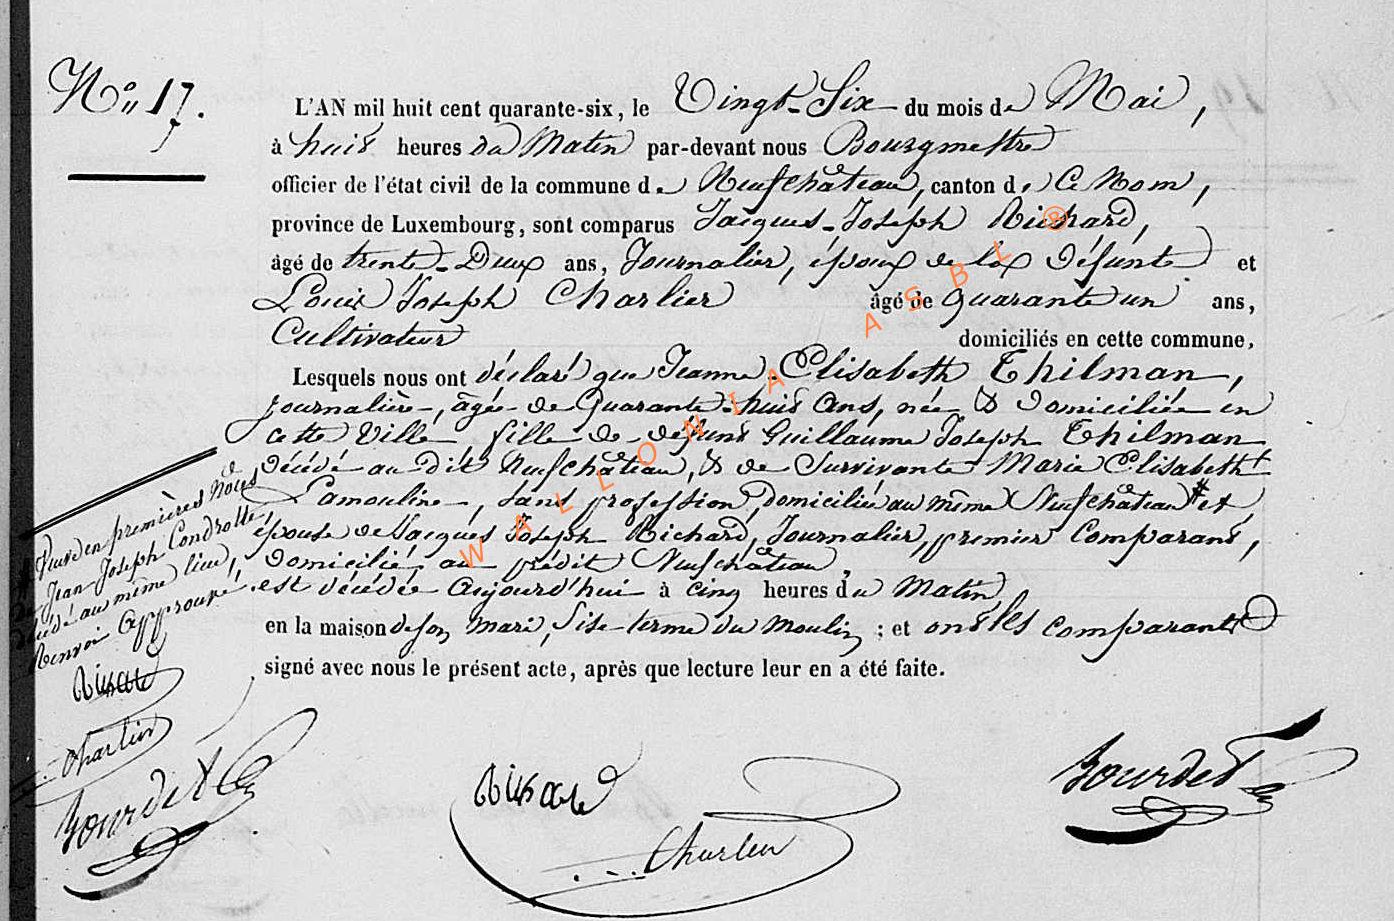 N° 17.
L'AN mil huit cent quarante-six, le Vingt-Six du mois de Mai,
à huit heures du Matin par-devant nous Bourgmestre
officier de l'état civil de la commune de Neufchâteau, canton de Ce Nom,
province de Luxembourg, sont comparus Jacques-Joseph Richard,
âgé de trente-Deux ans, Journalier, époux de la Défunte et
Louis Joseph Charlier âgé de quarante un ans,
Cultivateur domiciliés en cette commune,
Lesquels nous ont déclaré que Jeanne Elisabeth Thilman,
journalière, âgée de Quarante-huit ans, née & domiciliée en
cette Ville fille de défunt Guillaume Joseph Thilman
décédé au dit Neufchâteau, & de Survivante Marie Elisabeth
Lamouline, sans profession, domiciliée au même Neufchâteau # et
épouse de Jacques Joseph Richard, Journalier, premier Comparant,
Domicilié au prédit Neufchâteau,
est décédée aujourd'hui à cinq heures du Matin
en la maison de son mari, Sise terme du Moulin ; et ont les comparants
signé avec nous le présent acte, après que lecture leur en a été faite.
# Veuve en premières Noces
de Jean-Joseph Condrotte,
décédé au même lieu,
Renvoi Approuvé.
Richard
Charlier
Bourdet
Richard
Charlier
Bourdet
WALLONIA ASBL ®